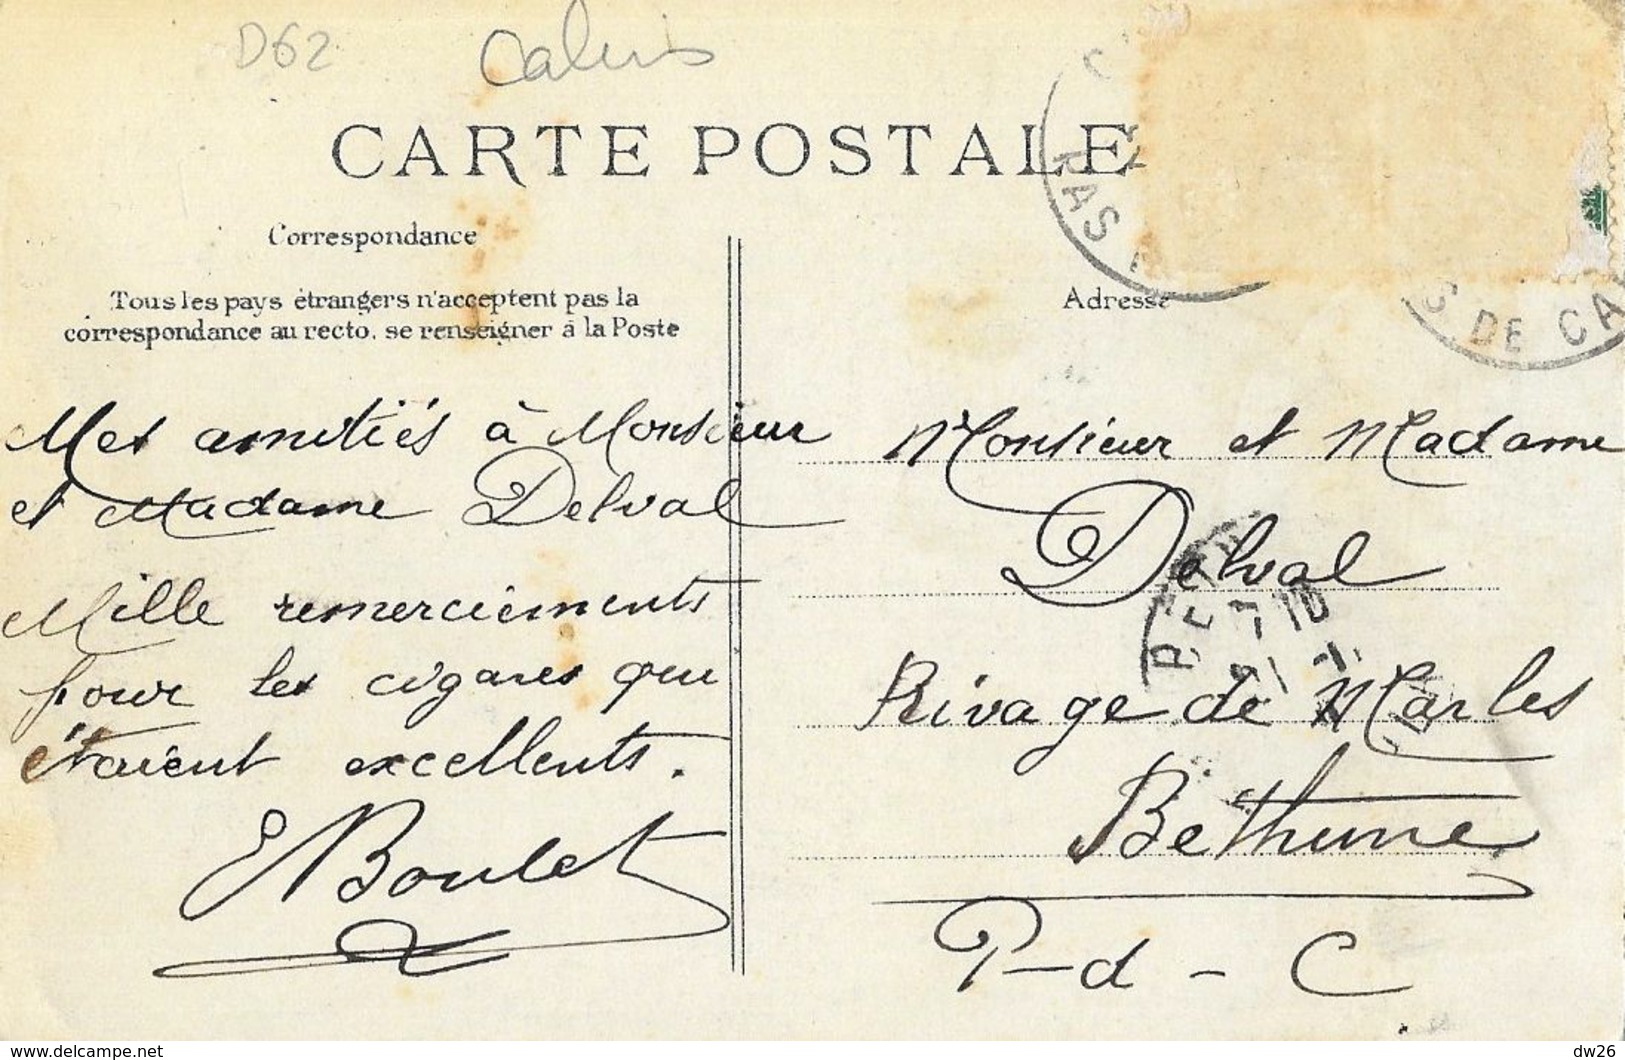 D62
Calais
CARTE POSTALE
Correspondance
Tous les pays étrangers n'acceptent pas la
correspondance au recto, se renseigner à la Poste
Adresse
PAS
S DE CA
Mes amitiés à Monsieur
et Madame Delval
Mille remerciements
pour les cigares qui
étaient excellents.
E Boulet
Monsieur et Madame
Delval
Rivage de Marles
Bethune
P-d-C
delcampe.net
dw26